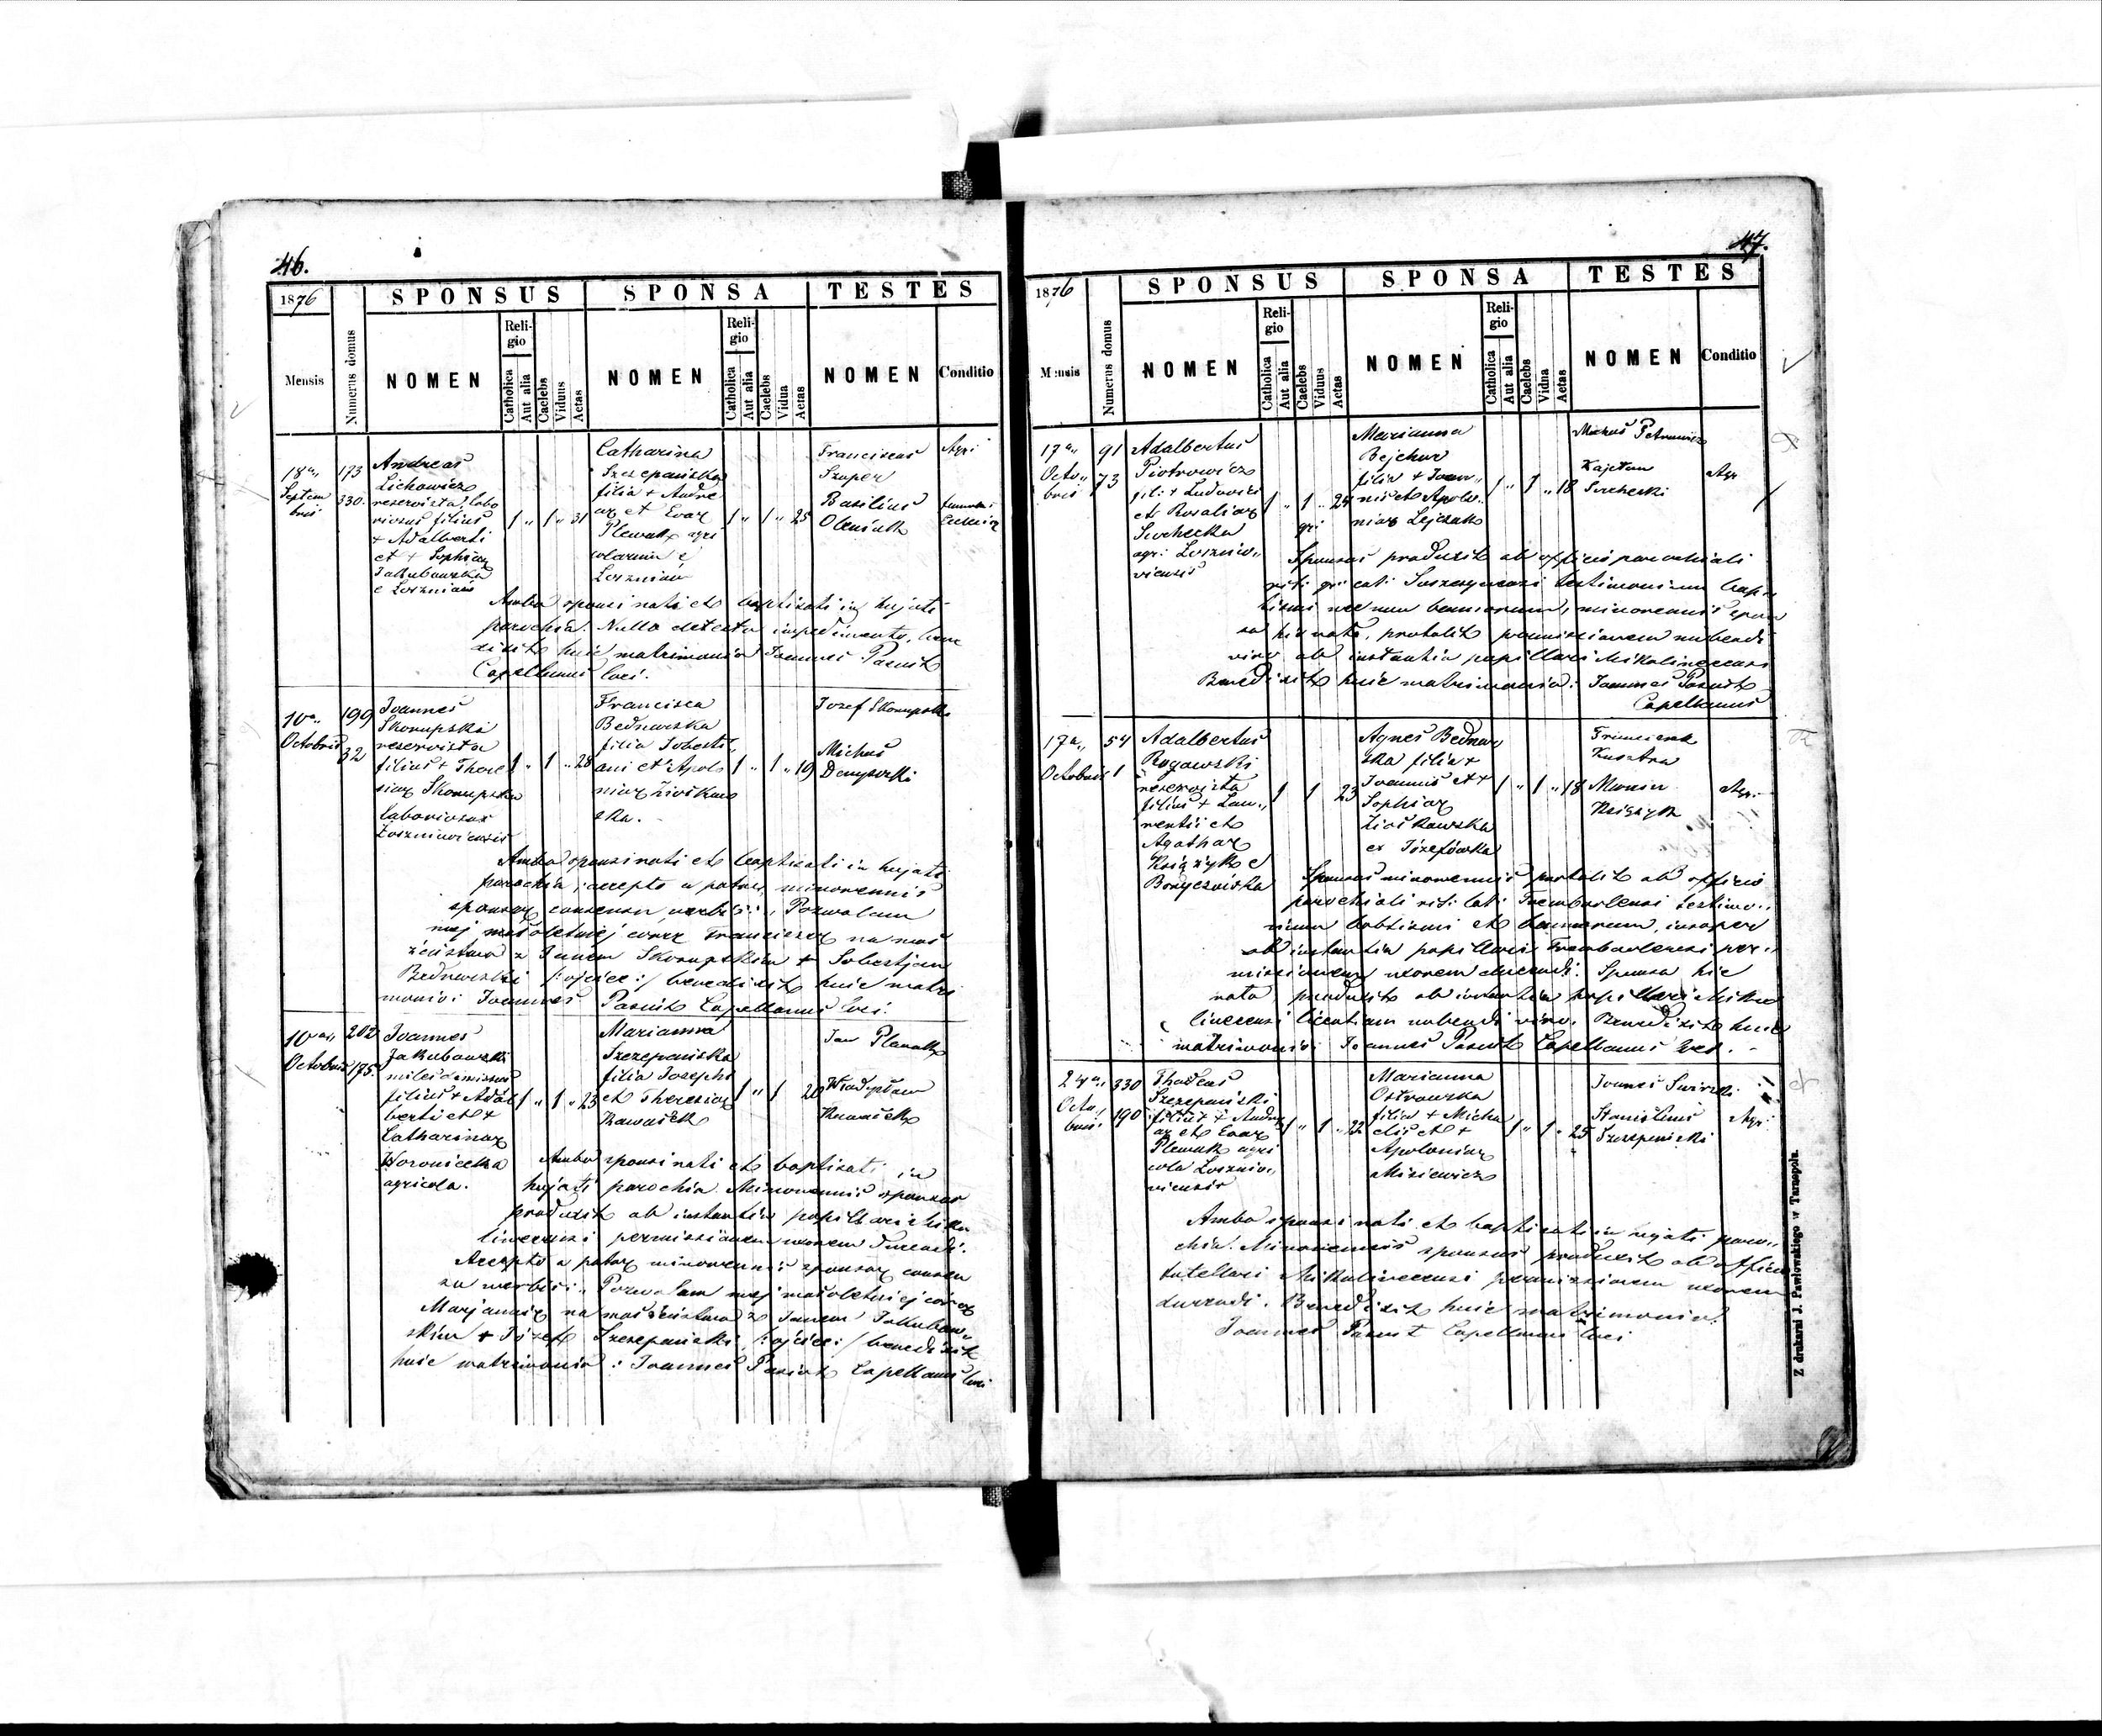 46.
1876
SPONSUS
SPONSA
TESTES
Mensis
Numerus domus
NOMEN
Religio
Catholica
Aut alia
Caelebs
Viduus
Aetas
NOMEN
Religio
Catholica
Aut alia
Caelebs
Vidua
Aetas
NOMEN
Conditio
18a
Septem
bris
173
330.
Andreas
Lichowicz
reservista, labo
riosus filius
+ Adalberti
et + Sophiae
Jakubowska
e Łoszniów
1 „ 1 „ 31
Catharina
Szczepańska
filia + Andre
ae et Evae
Plewak agri
colarum e
Łoszniów
1 „ 1 „ 25
Franciscus
Szuper
Basilius
Oleniuk
Agri
Ambo sponsi nati et baptisati in hujati
parochia. Nullo detecto impedimento, bene
dixit huic matrimonio Joannes Pasiut
Capellanus loci.
10a„
Octobris
199
32
Joannes
Skorupski
reservista
filius + There
siae Skorupska
laboriosus
Łoszniowiensis
1 „ 1 „ 28
Francisca
Bednarska
filia Sobesti„
ani et Apolo
niae Ziółkow
ska.
1 „ 1 „ 19
Jozef Skorupski
Michas
Denysecki
Ambo sponsi nati et baptisati in hujati
parochia, accepto a patre minorennis
sponsae consensu verbis: „Pozwalam
mej małoletniej córce Franciszce na mał
żeństwo z Janem Skorupskim + Sobestjan
Bednarski /:ojciec:/ benedixit huic matri
monio: Joannes Pasiut Capellanus loci.
10a„
Octobris
202
175.
Joannes
Jakubowski
miles dimissus
filius + Adal
berti et +
Catharinae
Woronicka
agricola.
1 „ 1 „ 23
Marianna
Szczepańska
filia Josephi
et Theresiae
Krawacek
1 „ 1 20
Jan Planak
Władysław
Ambo sponsi nati et baptisati in
hujati parochia. Minorennis sponsus
produxit ab instantia pupillari Miku
lincensi permissionem uxorem ducendi.
Accepto a patre minorennis sponsae consen
su verbis: „Pozwalam mej małoletniej córce
Marjannie na małżeństwo z Janem Jakubow„
skim + Józef Szczepański /:ojciec:/ benedixit
huic matrimonio: Joannes Pasiut Capellanus loci
47.
1876
SPONSUS
SPONSA
TESTES
Mensis
Numerus domus
NOMEN
Religio
Catholica
Aut alia
Caelebs
Viduus
Aetas
NOMEN
Religio
Catholica
Aut alia
Caelebs
Vidua
Aetas
NOMEN
Conditio
17a„
Octo„
bris
91
73
Adalbertus
Piotrowicz
fil: + Ludovici
et Rosaliae
Suchecka
agri: Łoszniow„
viensis
1 „ 1 „ 24
Marianna
Bejchur
filia + Joan„
nis et Apolo„
niae Lejczak
1 „ 1 „ 18
Michas Petrowicz
Kajetan
Suchecki
Agr
Sponsus produxit ab officio parochiali
rit: gr: cat: Suszczynensi testimonium bap
tismi nec non bannorum, minorennis spon
sa hic nata, protulit permissionem nubendi
viro ab instantia pupillari Mikulincensi
Benedixit huic matrimonio: Joannes Pasiut
Capellanus
17a„
Octobris
54
1
Adalbertus
Rogowski
reservista
filius + Lau„
rentii et
Agathae
Książyk e
1 1 23
Agnes Bednar
ska filia +
Joannis et +
Sophiae
Ziółkowska
ex Józefówka
1 „ 1 „ 18
Franciszek
Kusztra
Marcin
Książyk
Agr:
Sponsus minorennis protulit ab officio
parochiali rit: lat: Trembovlensi testimo„
nium babtismi et bannorum, insuper
ab instantia pupillari Trembovlensi per„
missionem uxorem ducendi. Sponsa hic
nata, produxit ab instantia pupillari Miku
lincensi licentiam nubendi viro. Benedixit huic
matrimonio: Joannes Pasiut Capellanus loci.
24a„
Octo„
bris.
330
190
Thadeus
Szczepański
filius + Andre
ae et Evae
Plewak agri
cola Łosznio„
viensis
1 „ 1 „ 22
Marianna
Ostrowska
filia + Micha
elis et +
Apoloniae
Misiewicz
1 „ 1 „ 25
Joannes Świrski
Stanislaus
Szczepański
Agr:
Ambo sponsi nati et baptisati in hujati paro„
chia. Minorennis sponsus produxit ab officio
tutellari Mikulincensi permissionem uxorem
ducendi. Benedixit huic matrimonio:
Joannes Pasiut Capellanus loci
Z drukarni J. Pawłowskiego w Tarnopolu.